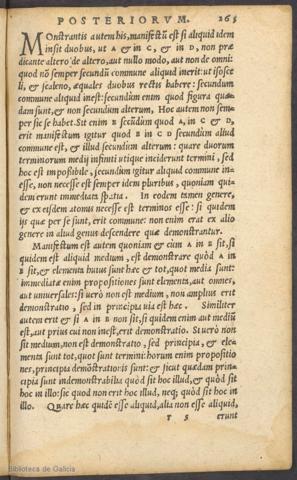 POSTERIORVM. 265
Monstrantis autem his, manifestũ est si aliquid idem
insit duobus, ut A & in C, & in D, non præ
dicante altero de altero, aut nullo modo, aut non de omni:
quod nõ semper secundũ commune aliquid inerit: ut isosce
li, & scaleno, æquales duobus rectis habere: secundum
commune aliquid inest: secundũm enim quod figura quæ-
dam sunt, & non secundum alterum. Hoc autem non sem-
per sic se habet. Sit enim B secũdum quod A, in C & D,
erit manifestum igitur quod B in C D secundum aliud
commune est, & illud secundum alterum: quare duorum
terminorum medij infiniti utique inciderunt termini, sed
hoc est impossibile, secundum igitur aliquid commune in-
esse, non necesse est semper idem pluribus, quoniam qui-
dem erunt immediata spatia. In eodem tamen genere,
& ex eisdem atomis necesse est terminos esse: si quidem
ijs quæ per se sunt, erit commune: non enim erat ex alio
genere in aliud genus descendere quæ demonstrantur.
Manifestum est autem quoniam & cùm A in B sit, si
quidem est aliquid medium, est demonstrare quòd A in
B sit, & elementa huius sunt hæc & tot, quot media sunt:
immediatæ enim propositiones sunt elementa, aut omnes,
aut uniuersales: si uerò non est medium, non amplius erit
demonstratio, sed in principia uia est hæc. Similiter
autem erit & si A in B non sit, si quidem enim aut mediũ
est, aut prius cui non inest, erit demonstratio. Si uerò non
sit medium, non est demonstratio, sed principia, & ele-
menta sunt tot, quot sunt termini: horum enim propositio
nes, principia demõstratiõis sunt: & sicut quædam prin-
cipia sunt indemonstrabilia quòd sit hoc illud, & quòd sit
hoc in illo: sic quod non erit hoc illud, neq; quòd sit hoc in
illo. Quare hæc quidẽ esse aliquid, alia non esse aliquid,
r 5 erunt
Biblioteca de Galicia